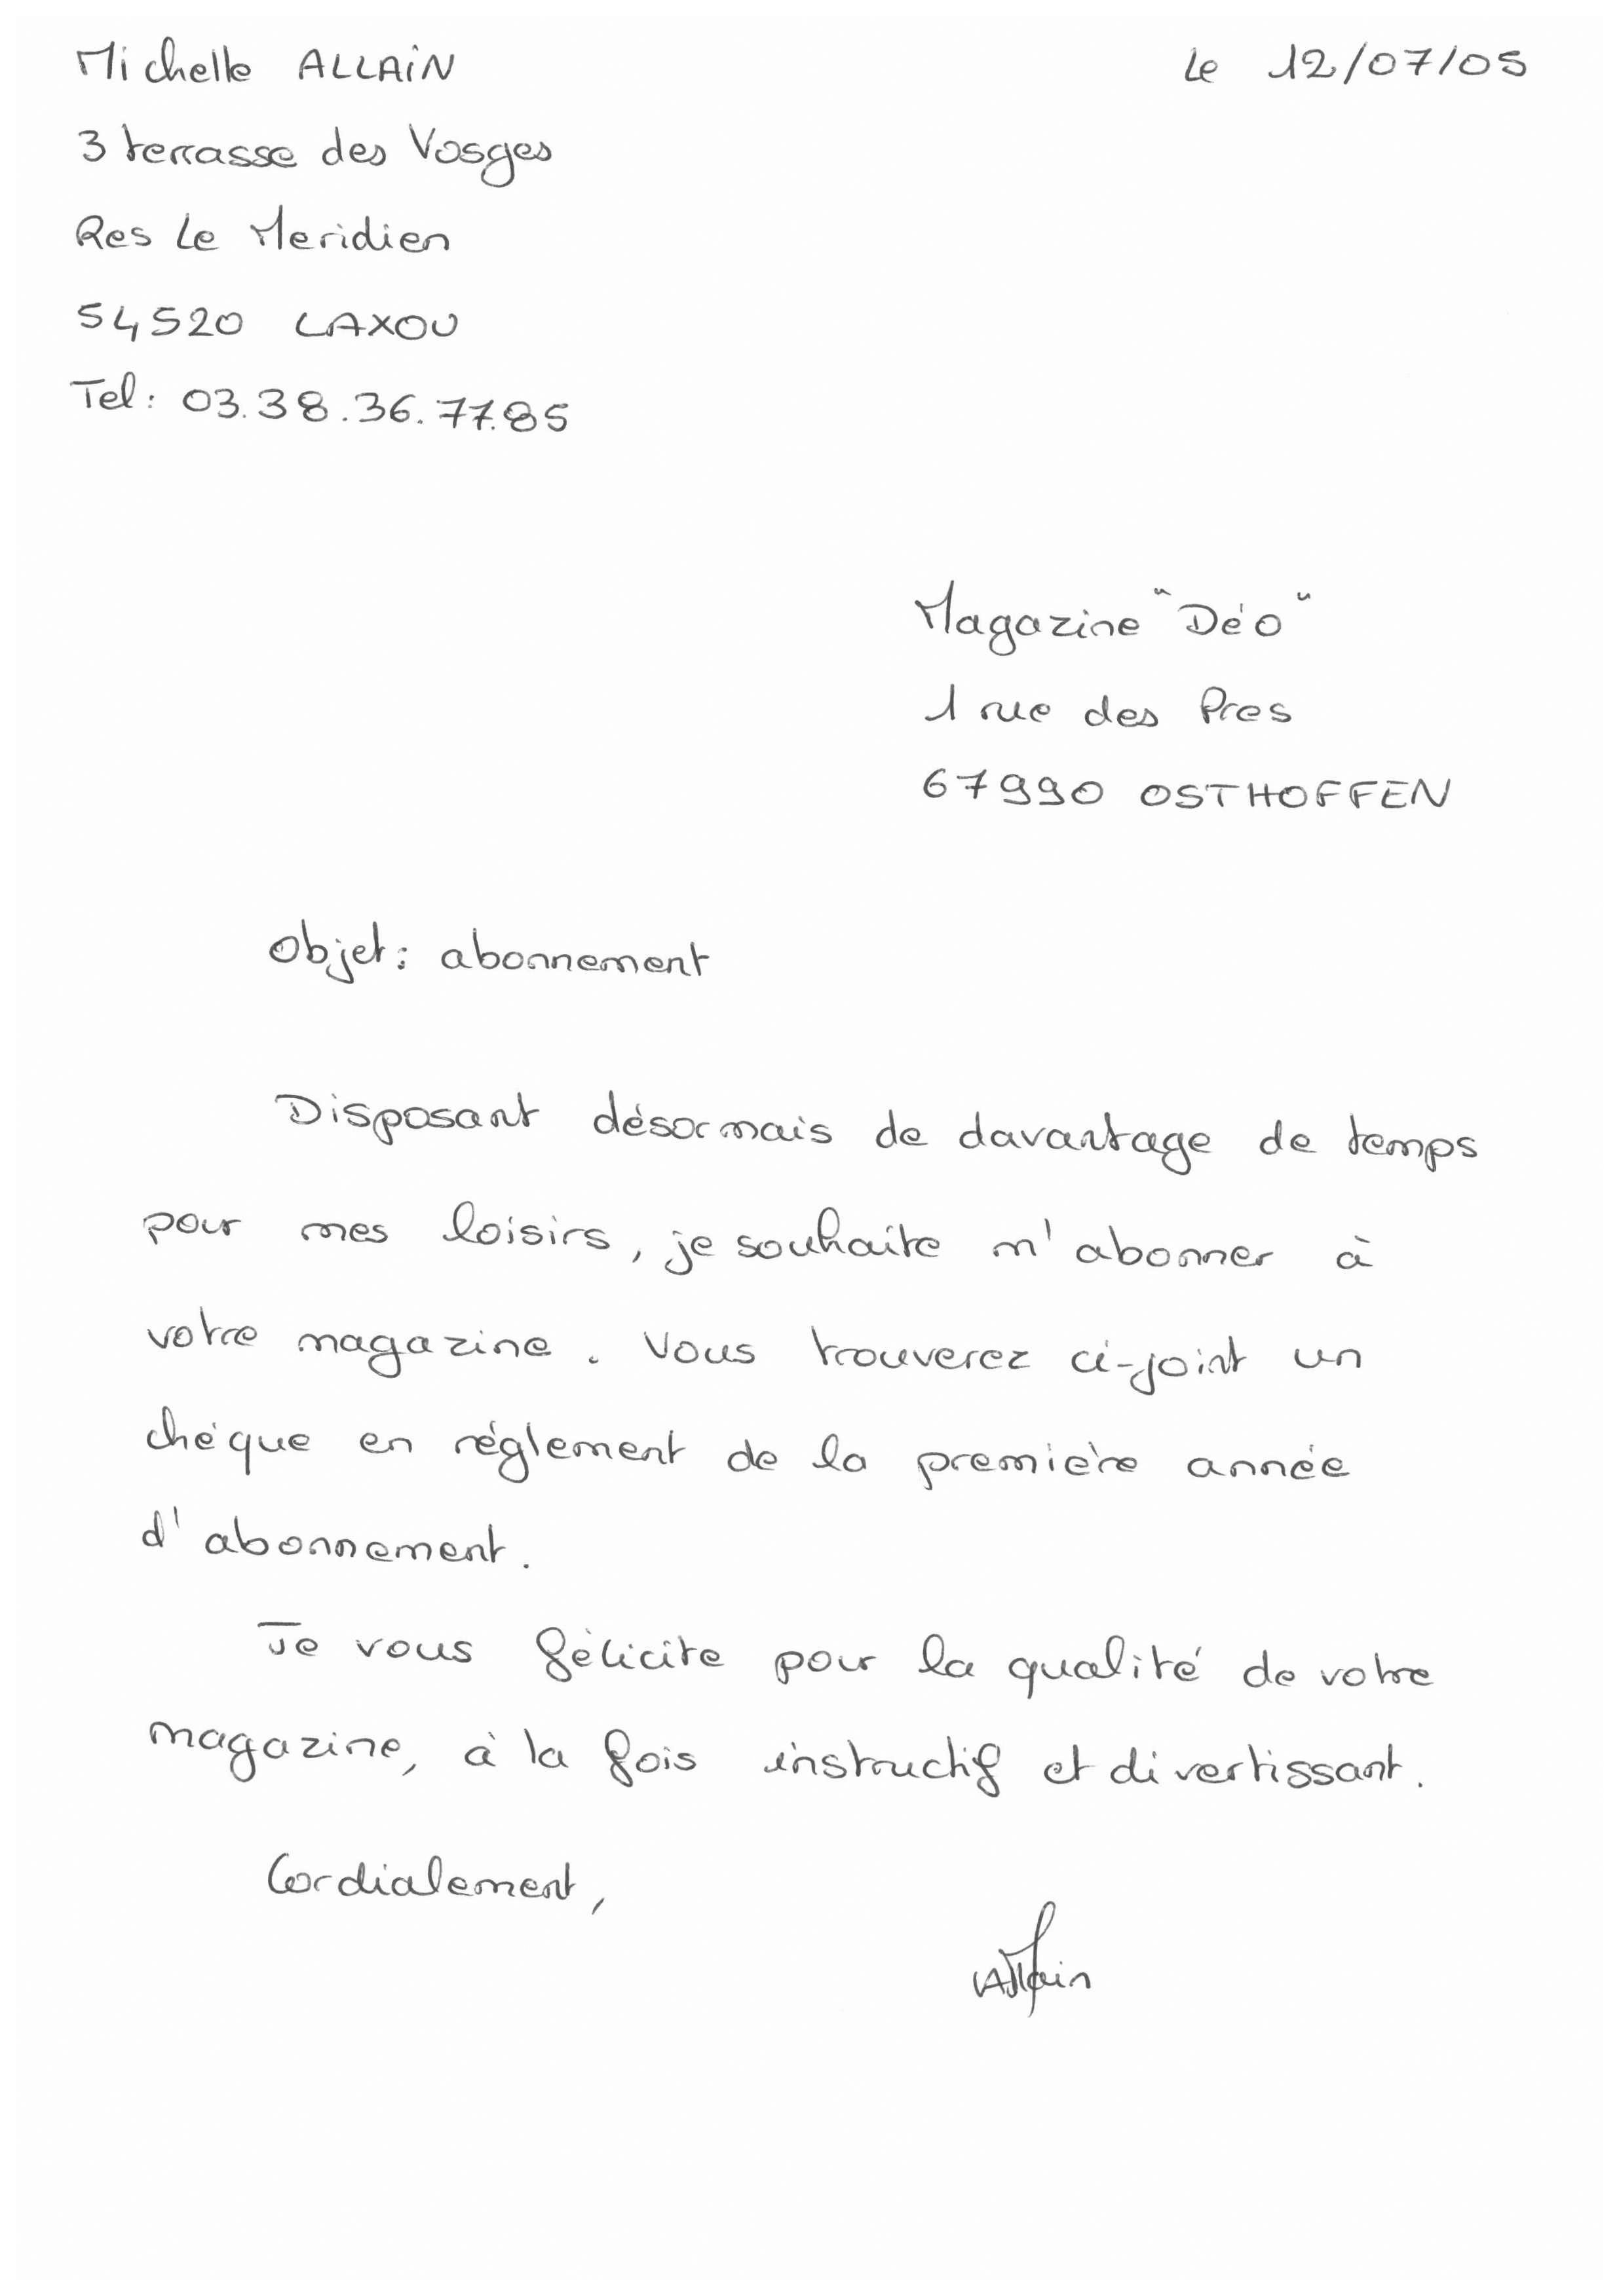 Michelle ALLAIN
Le 12/07/05
3 terrasse des Vosges
Res Le Meridien
54520 LAXOU
Tel: 03.38.36.77.85
Magazine "Déo"
1 rue des Pres
67990 OSTHOFFEN
Objet: abonnement
Disposant désormais de davantage de temps
pour mes loisirs, je souhaite m'abonner à
votre magazine. Vous trouverez ci-joint un
chéque en réglement de la première année
d'abonnement.
Je vous félicite pour la qualité de votre
magazine, à la fois instructif et divertissant.
Cordialement,
Allain